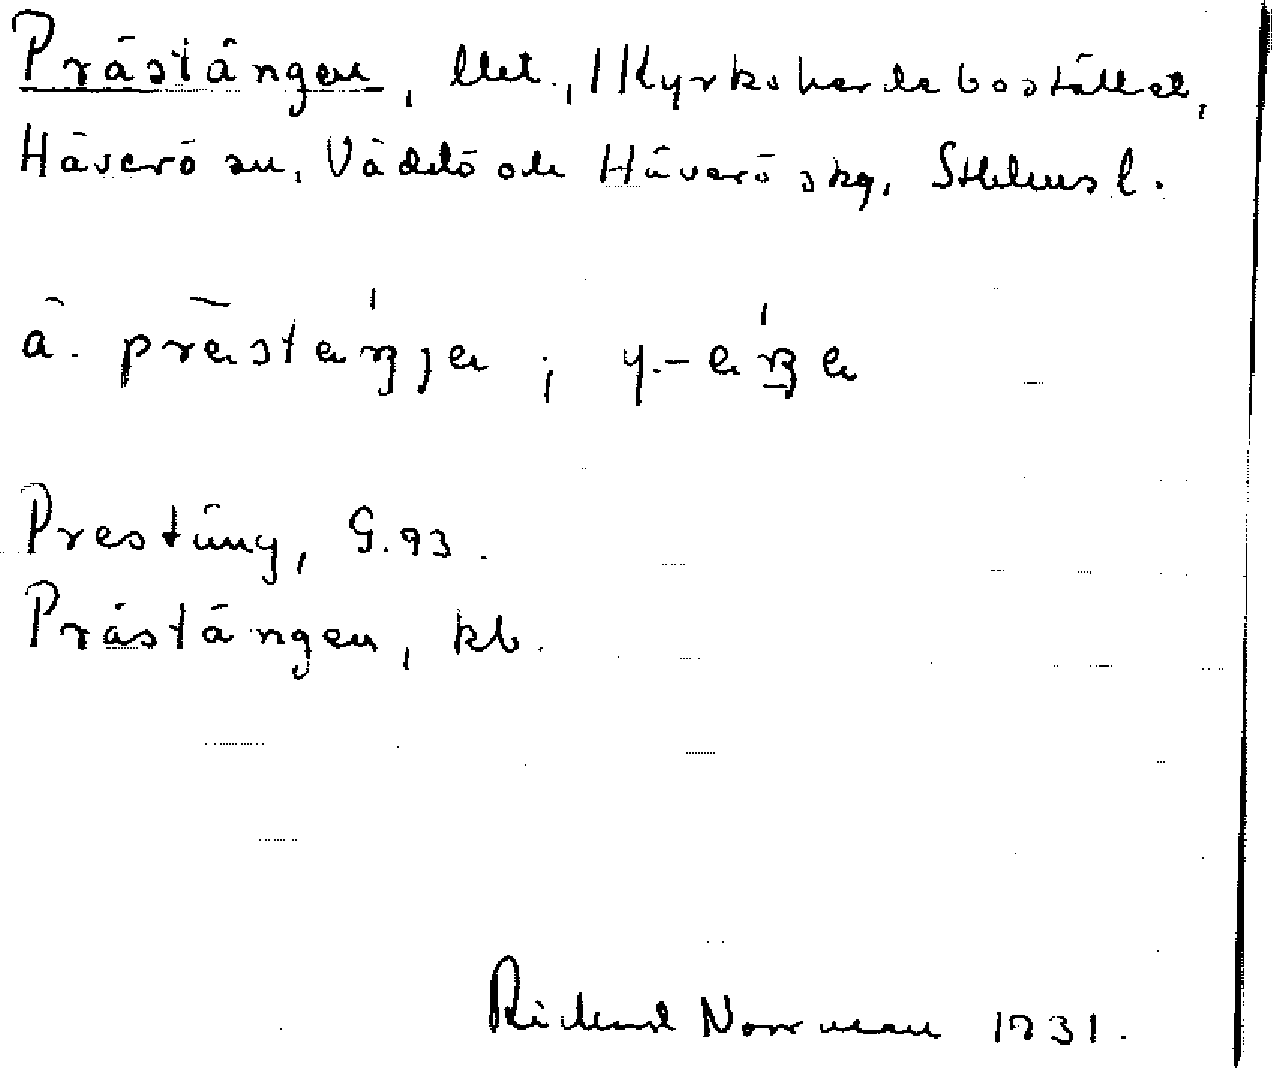 Prästängen, llet., 1 Kyrkoherdebostället,
Häverö sn, Väddö och Häverö skg, Sthlms l.
ä. præstæŋjæ; y.-æŋæ
Prestäng, G.93.
Prästängen, kb.
Richard Norrman 1931.